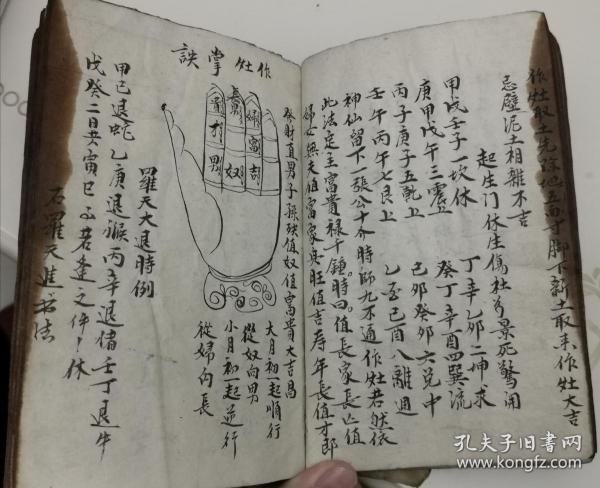 作灶取土先除地五面寸脚下新土取来作灶大吉
忌壁泥土相雜不吉
起生門休生傷杜景死驚開
甲戊壬子一坎休
丁辛乙卯二坤求
庚甲戊午三震上
癸丁辛酉四巽流
丙子庚子五乾上
己卯癸卯六兌中
壬午丙午七艮上
乙酉己酉八離週
神仙留下一張公十个時師九不通作灶若然依
此法定主富貴祿千鍾時曰值長家長亡值
婦女無夫值富家興旺值吉壽年長值才郎
發財直男子孫殃值奴值富貴大吉昌
作灶掌訣
長
婦
富
吉
奴
才
男
大月初一起順行
從奴向男
小月初一起逆行
從婦向長
羅天大退時例
甲己退蛇乙庚退猴丙辛退猪壬丁退牛
戊癸二日共寅巳
右羅天進
孔夫子旧书网
www.kongfz.com